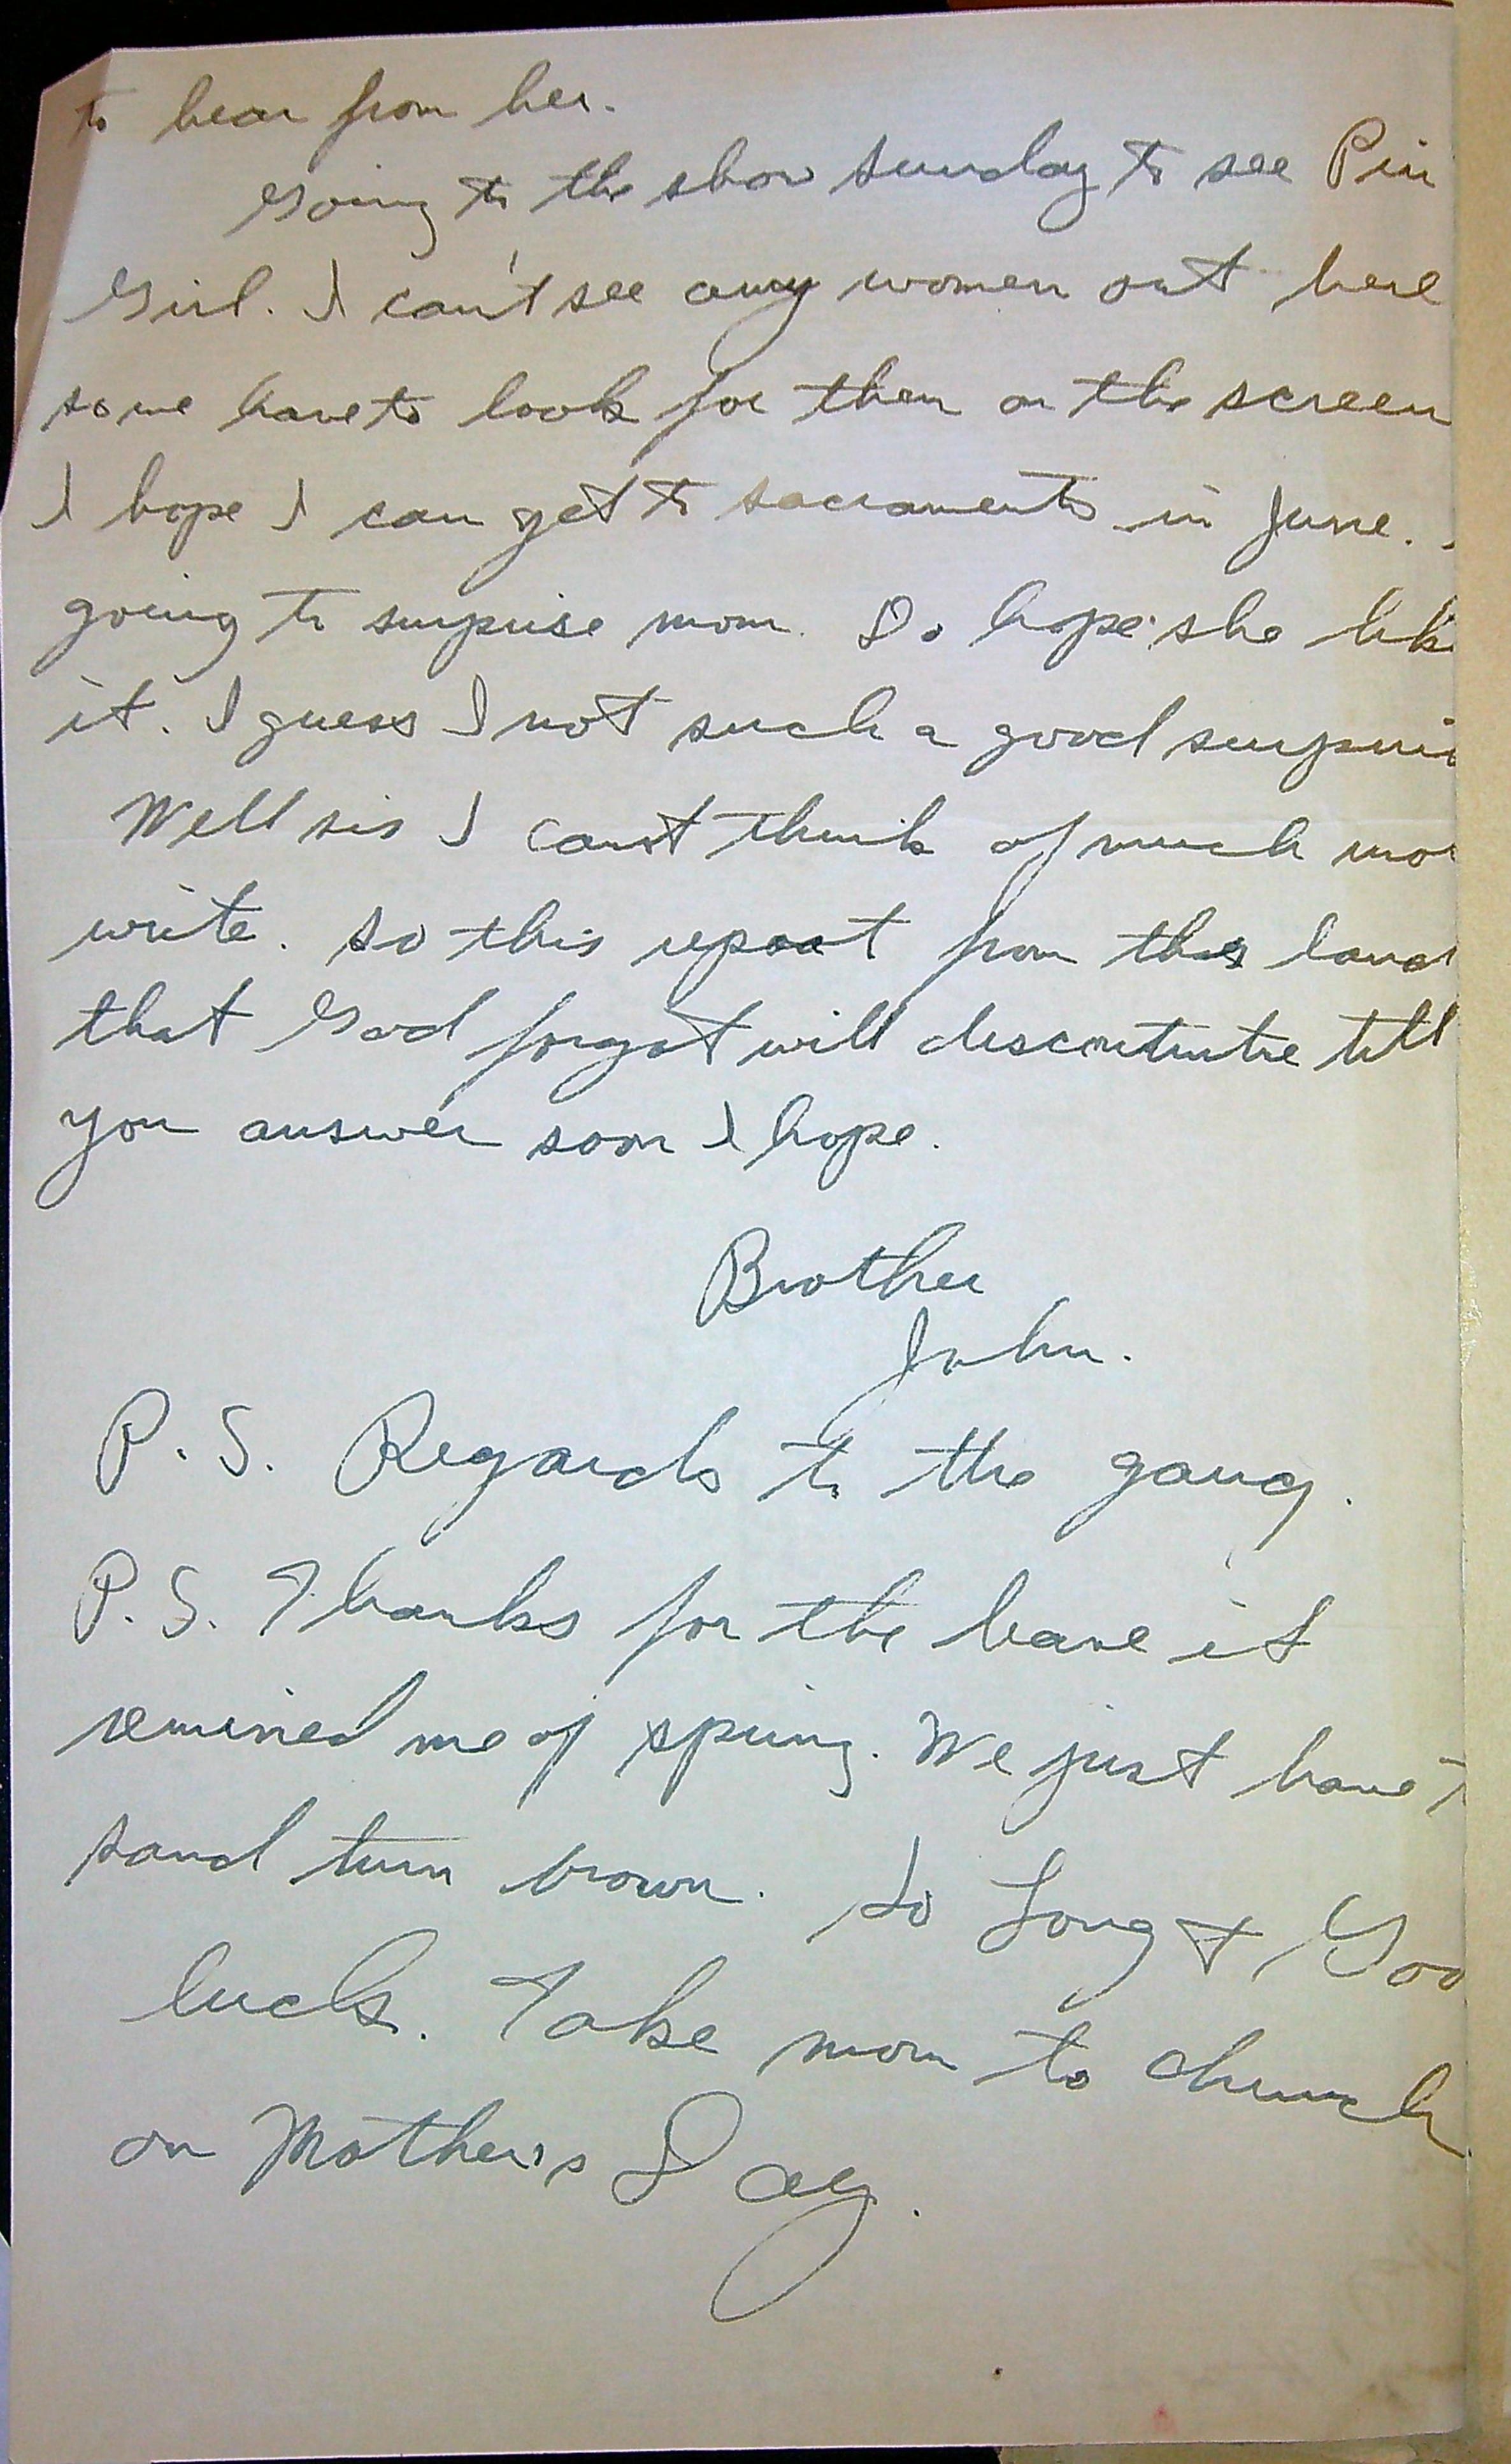 to hear from her.
Going to the show Sunday to see Pin
Girl. I can't see any women out here
so we have to look for them on the screen
I hope I can get to Sacramento in June.
going to surprise mom. Do hope she lik
it. I guess I not such a good surpri
Well sis I cant think of much mo
write. So this repoat from this land
that God forgot will discontintue till
you answer soon I hope.
Brother
John.
P.S. Regards to the gang.
P.S. Thanks for the leave it
remined me of spring. We just have t
sand turn brown. So Long & Goo
luck. Take mom to church
on Mother's Day.